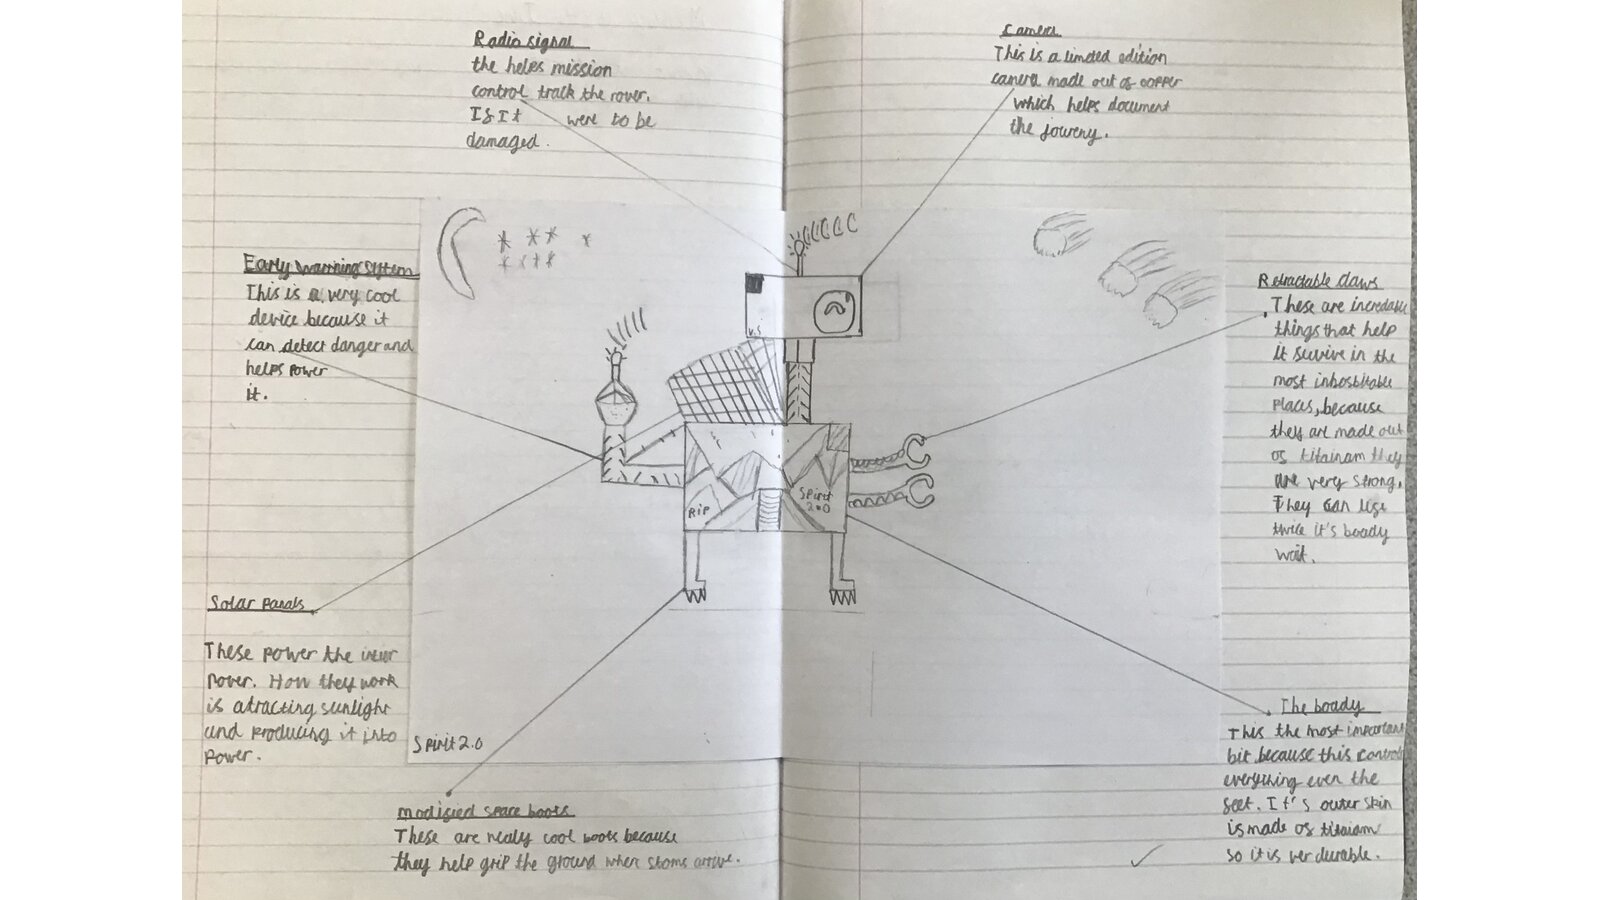 Radio signal
the helps mission
control track the rover.
If It were to be
damaged.
Camera
This is a limited edition
camera made out of copper
which helps document
the jowery.
Early warning system
This is a very cool
device because it
can detect danger and
helps power
it.
Retractable claws
These are incredable
things that help
it survive in the
most inhosbitable
places, because
they are made out
of titainam they
are very strong.
They can lift
twice it's boady
wait.
V.S
RIP
Spirit
2.0
Solar panals
These power the
rover. How they work
is atracting sunlight
and producing it into
power.
Spirit 2.0
modified space boots
These are realy cool boots because
they help grip the ground when stoms arrive.
The boady
This the most important
bit because this controls
everything even the
feet. It's outer skin
is made of titaiam
so it is ver durable.